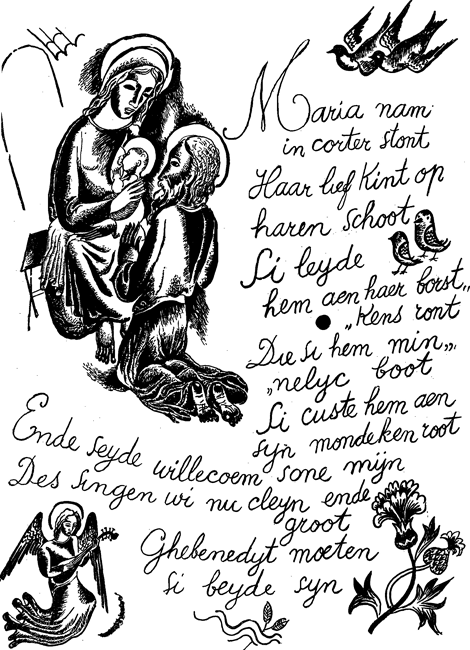 Maria nam
in corter stont
Haar lief Kint op
haren schoot
Si leyde
hem aen haer borst„
„Kens ront
Die si hem min„
„nelyc boot
Si custe hem aen
syn mondeken root
Ende seyde willecoem sone mijn
Des singen wi nu cleyn ende
groot
Ghebenedyt moeten
si beyde syn